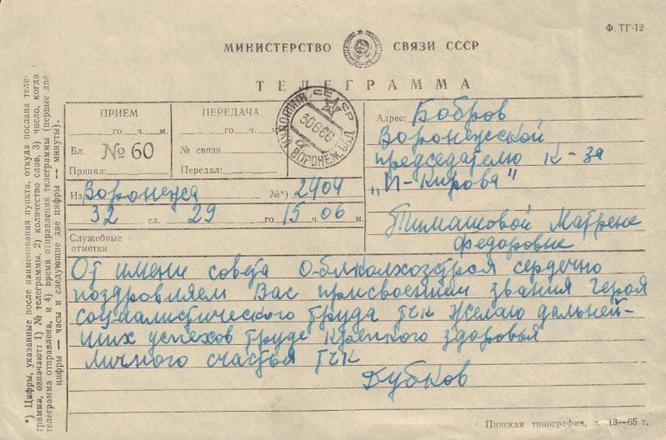 Ф. ТГ-12
МИНИСТЕРСТВО СВЯЗИ СССР
ТЕЛЕГРАММА
ПРИЕМ
го ч. м.
Бл. № 60
Принял:
ПЕРЕДАЧА
го ч. м.
№ связи
Передал:
СССР
30666
ВОРОНЕЖ. ОБЛ.
Адрес: Бобров
Воронежской
председателю к-за
"И-Кирова"
Тимашовой Матрене
Федоровне
Из Воронежа №*) 2404
32 сл. 29 го 15 ч. 06 м.
Служебные
отметки
От имени совета Облколхозстроя сердечно
поздравляем Вас присвоением звания героя
социалистического труда тчк Желаю дальней-
ших успехов труде крепкого здоровья
личного счастья тчк
Бубков
*) Цифры, указанные после наименования пункта, откуда послана теле-
грамма, означают: 1) № телеграммы, 2) количество слов, 3) число, когда
телеграмма отправлена, и 4) время отправления телеграммы (первые две
цифры — часы и следующие две цифры — минуты).
Пинская типография, з. 13—65 г.